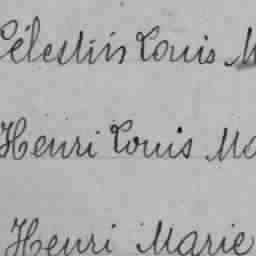 Célestin Louis M
Henri Louis Ma
Henri Marie